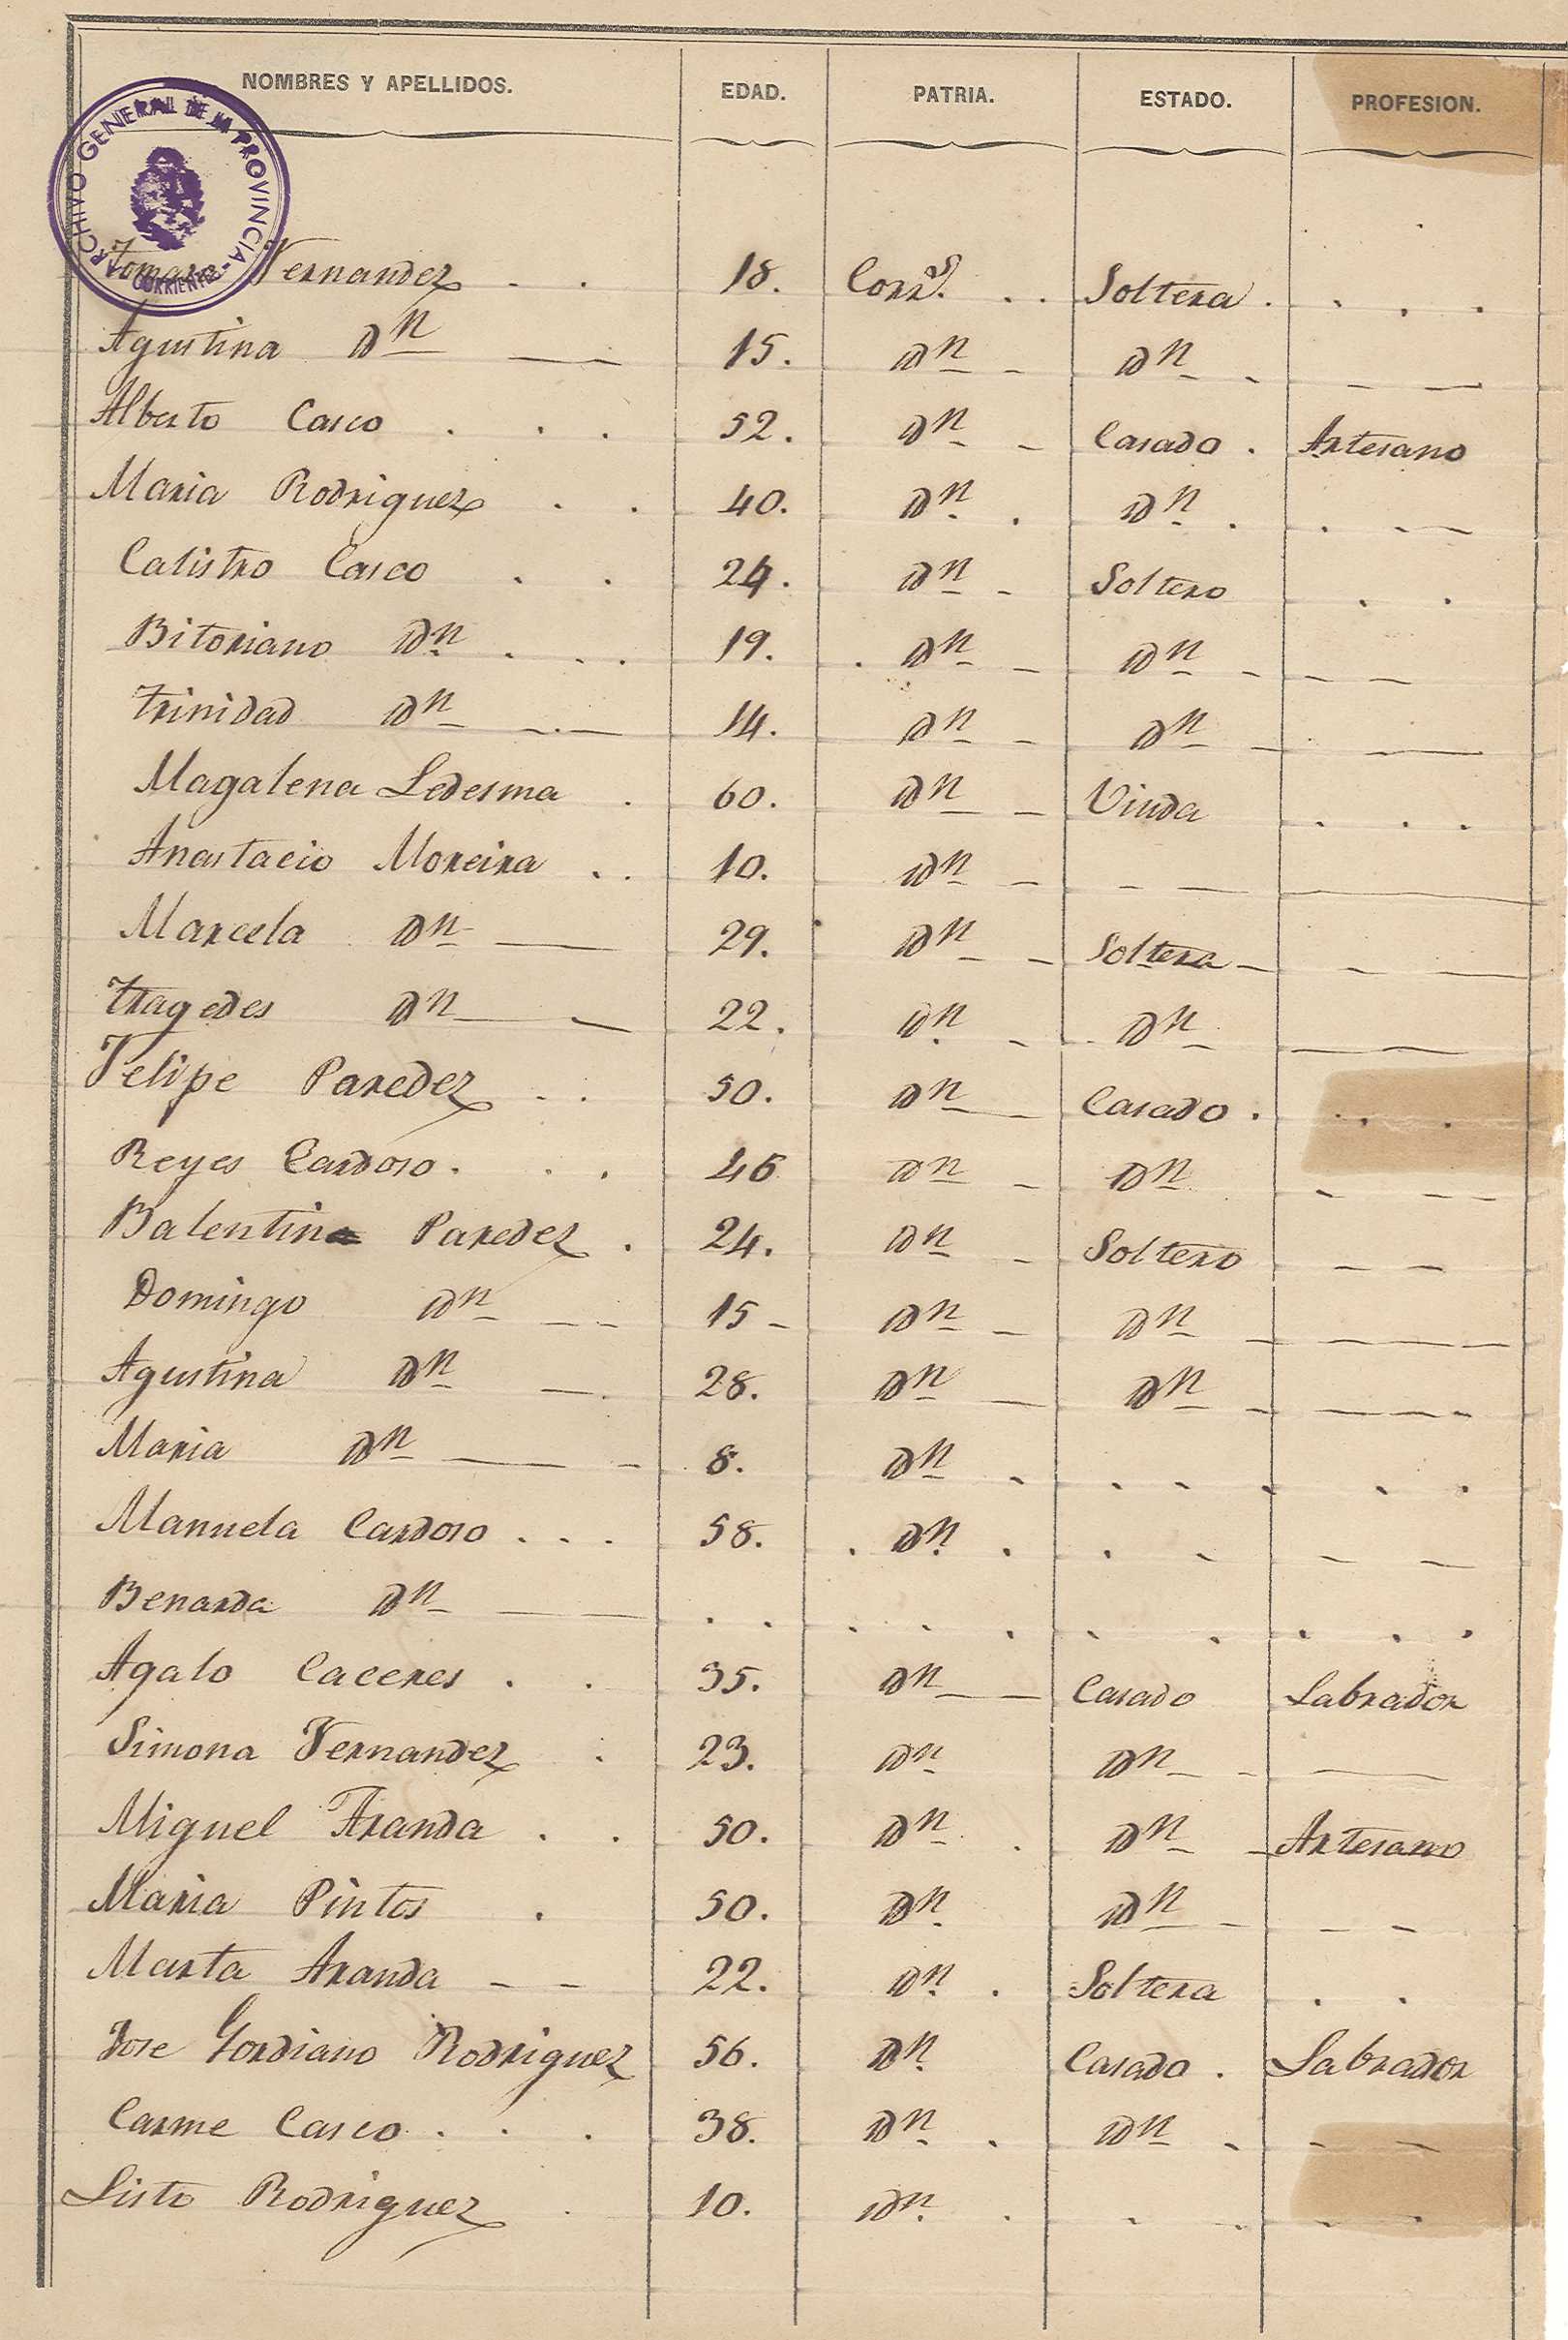 NOMBRES Y APELLIDOS. EDAD. PATRIA. ESTADO. PROFESION.
ARCHIVO GENERAL DE LA PROVINCIA - CORRIENTES
Tomasa Fernandez . . 18. Corr.s . . Soltera . . . .
Agustina Dn 15. Dn Dn
Alberto Casco . . . 52. Dn Casado . Artesano
Maria Rodriguez . . 40. Dn . Dn .
Calistro Casco . . 24. Dn Soltero . .
Bitoriano Dn . . . 19. . Dn Dn
Trinidad Dn 14. Dn Dn
Magalena Ledesma . 60. Dn Viuda . . .
Anastacio Moreira . . 10. Dn
Marcela Dn 29. Dn Soltera
Tragedes Dn 22. Dn Dn
Felipe Paredez . . 50. Dn Casado . . . .
Reyes Cardoso . . . 46 Dn Dn
Balentin Paredez . 24. Dn Soltero
Domingo Dn 15 Dn Dn
Agustina Dn 28. Dn Dn
Maria Dn 8. Dn . . . . . .
Manuela Cardoso . . . 58. . Dn . .
Benarda Dn . . . . . . . . . .
Agalo Caceres . . 35. Dn Casado Labrador
Simona Fernandez . 23. Dn Dn
Miguel Aranda . . 50. Dn . Dn Artesano
Maria Pintos . 50. Dn Dn
Marta Aranda 22. Dn . Soltera . .
Jose Gordiano Rodriguez 56. Dn Casado . Labrador
Carme Casco . . . 38. Dn . Dn
Sisto Rodriguez . 10. Dn . . . . .